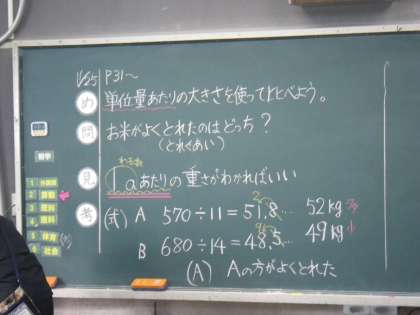 1/25 P31〜
め 単位量あたりの大きさを使ってくらべよう。
問 お米がよくとれたのはどっち?
(とれぐあい)
見 1aあたりの重さがわかればいい
考 (式) A 570÷11=51.8… 52kg
B 680÷14=48.5… 49kg
(A) Aの方がよくとれた
1 外国語
2 算数
3 理科
4 理科
5 体育
6 社会